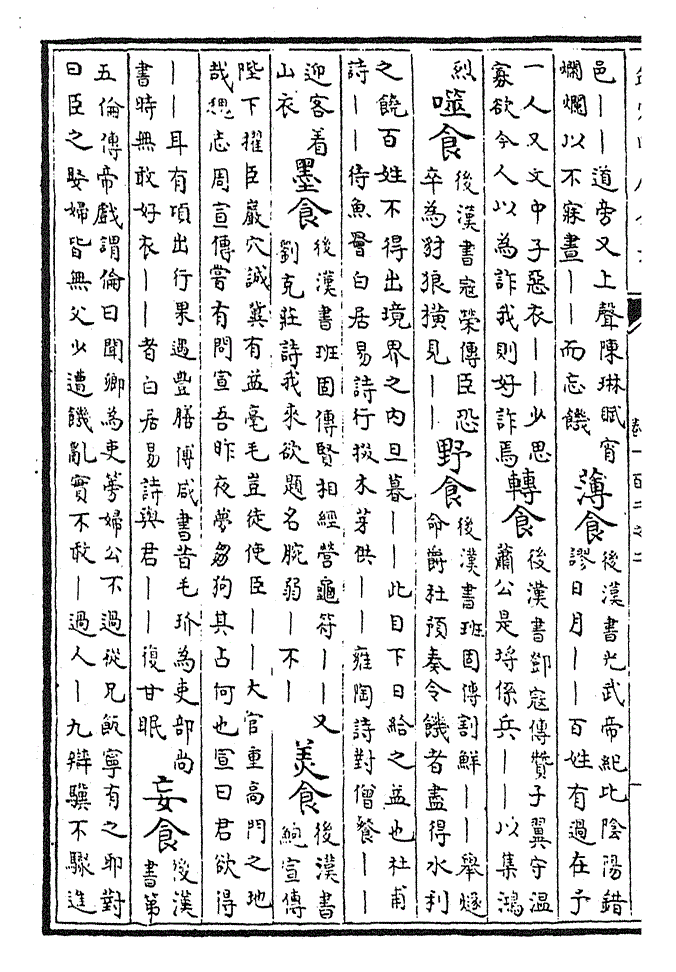 邑——道旁又上聲陳琳賦宵
爛爛以不寐晝——而忘饑
薄食
後漢書光武帝紀比陰陽錯
謬日月——百姓有過在予
一人又文中子惡衣——少思
寡欲今人以為詐我則好詐焉
轉食
後漢書鄧寇傳贊子翼守溫
蕭公是埒係兵——以集鴻
烈
噬食
後漢書寇榮傳臣恐
卒為豺狼橫見——
野食
後漢書班固傳割鮮——舉燧
命爵杜預奏令饑者盡得水利
之饒百姓不得出境界之內旦暮——此目下日給之益也杜甫
詩——待魚罾白居易詩行掇木芽供——雍陶詩對僧餐——
迎客着
山衣
墨食
後漢書班固傳賢相經營龜符——又
劉克莊詩我來欲題名腕弱—不—
美食
後漢書
鮑宣傳
陛下擢臣巖穴誠冀有益毫毛豈徒使臣——大官重高門之地
哉魏志周宣傳嘗有問宣吾昨夜夢芻狗其占何也宣曰君欲得
——耳有頃出行果遇豐膳傅咸書昔毛玠為吏部尚
書時無敢好衣——者白居易詩與君——復甘眠
妄食
後漢
書第
五倫傳帝戲謂倫曰聞卿為吏篣婦公不過從兄飯寧有之耶對
曰臣之娶婦皆無父少遭饑亂實不敢—過人—九辯驥不驟進